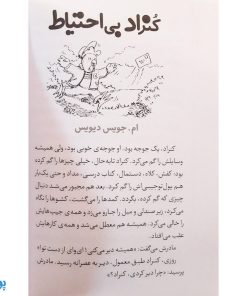 کنراد بی‌احتیاط
ام. جویس دیویس
کنراد، یک جوجه بود. او جوجه‌ی خوبی بود، ولی همیشه
وسایلش را گم می‌کرد. کنراد تابه‌حال، خیلی چیزها را گم کرده
بود: کفش، کلاه، دستمال، کتاب درسی، مداد و حتی یک‌بار
هم پول‌توجیبی‌اش را گم کرد. بعد هم مجبور می‌شد دنبال
چیزی که گم کرده، بگردد. کمدها را می‌گشت، کشوها را نگاه
می‌کرد، زیر صندلی و مبل را جارو می‌زد و همه‌ی جیب‌هایش
را خالی می‌کرد. همیشه هم معطل می‌شد و همه‌ی کارهایش
عقب می‌افتاد.
مادرش می‌گفت: «همیشه دیر می‌کنی! ای‌وای از دست تو!»
روزی، کنراد طبق معمول، دیر به عصرانه رسید. مادرش
پرسید: «چرا دیر کردی، کنراد؟»